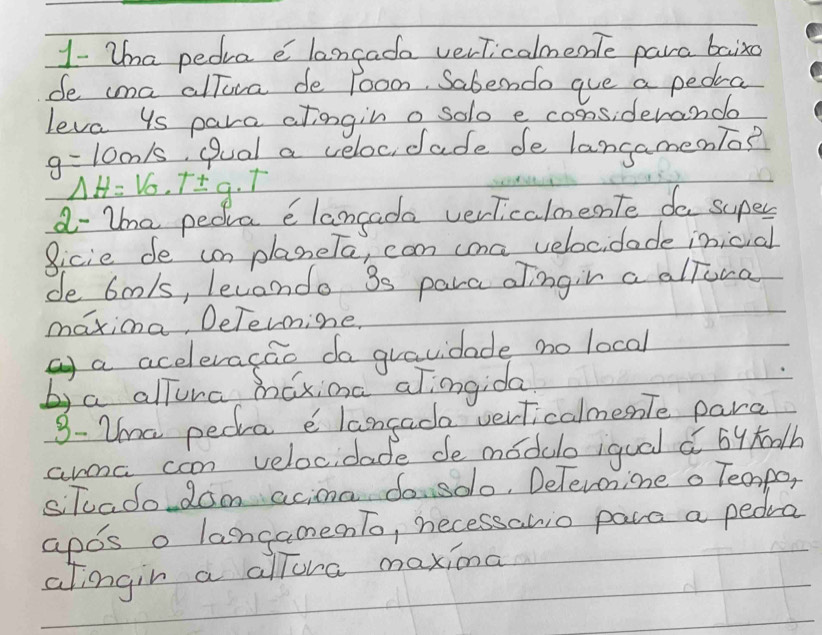 1- Uma pedra é lançada verticalmente para baixo
de uma altura de 100m. Sabendo que a pedra
leva 4s para atingir o solo e considerando
g=10m/s. Qual a velocidade de lançamento?
ΔH = Vo.T ± g.T
2- Uma pedra é lançada verticalmente da super
ficie de um planeta, com uma velocidade inicial
de 6m/s, levando 3s para atingir a altura
máxima. Determine.
a) a aceleração da gravidade no local
b) a altura máxima atingida.
3- Uma pedra é lançada verticalmente para
arma com velocidade de módulo igual á 54km/h
situado 20m acima do solo. Determine o Tempo,
após o lançamento, necessario para a pedra
atingir a altura maxima